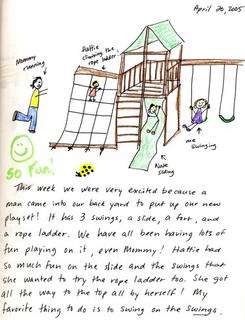 April 20, 2005
Mommy
running
Hattie
climbing the
rope ladder
me
swinging
Nate
sliding
So Fun!
This week we were very excited because a
man came into our back yard to put up our new
playset! It has 3 swings, a slide, a fort, and
a rope ladder. We have all been having lots of
fun playing on it, even Mommy! Hattie had
so much fun on the slide and the swings that
she wanted to try the rope ladder too. She got
all the way to the top all by herself! My
favorite thing to do is to swing on the swings.